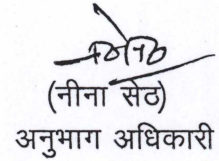 (नीना सेठ)
अनुभाग अधिकारी